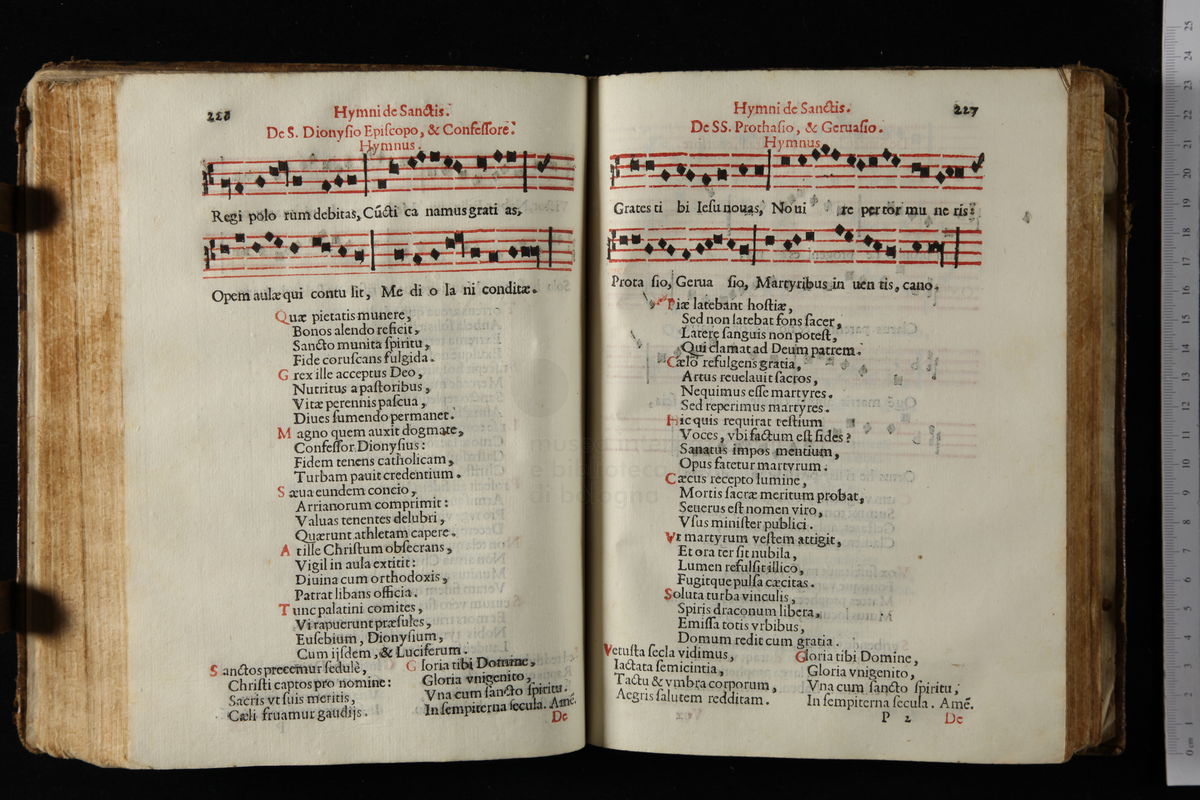 226
Hymni de Sanctis.
De S. Dionysio Episcopo, & Confessore.
Hymnus.
Regi polo rum debitas, Cūcti ca namus grati as,
Opem aulæ qui contu lit, Me di o la ni conditæ.
Quæ pietatis munere,
Bonos alendo reficit,
Sancto munita spiritu,
Fide coruscans fulgida.
Grex ille acceptus Deo,
Nutritus a pastoribus,
Vitæ perennis pascua,
Diues sumendo permanet.
Magno quem auxit dogmate,
Confessor Dionysius:
Fidem tenens catholicam,
Turbam pauit credentium.
Sæua eundem concio,
Arrianorum comprimit:
Valuas tenentes delubri,
Quærunt athletam capere.
At ille Christum obsecrans,
Vigil in aula extitit:
Diuina cum orthodoxis,
Patrat libans officia.
Tunc palatini comites,
Vi rapuerunt præsules,
Eusebium, Dionysium,
Cum ijsdem, & Luciferum.
Sanctos precemur sedulè,
Christi captos pro nomine:
Sacris vt suis meritis,
Cæli fruamur gaudijs.
Gloria tibi Domine,
Gloria vnigenito,
Vna cum sancto spiritu.
In sempiterna secula. Amē.
De
227
Hymni de Sanctis.
De SS. Prothasio, & Geruasio.
Hymnus.
Grates ti bi Iesu nouas, No ui re per tor mu ne ris:
Prota sio, Gerua sio, Martyribus in uen tis, cano.
Piæ latebant hostiæ,
Sed non latebat fons sacer,
Latere sanguis non potest,
Qui clamat ad Deum patrem.
Cælo refulgens gratia,
Artus reuelauit sacros,
Nequimus esse martyres.
Sed reperimus martyres.
Hic quis requirat testium
Voces, vbi factum est fides?
Sanatus impos mentium,
Opus fatetur martyrum.
Cæcus recepto lumine,
Mortis sacræ meritum probat,
Seuerus est nomen viro,
Vsus minister publici.
Vt martyrum vestem attigit,
Et ora ter sit nubila,
Lumen refulsit illico,
Fugitque pulsa cæcitas.
Soluta turba vinculis,
Spiris draconum libera,
Emissa totis vrbibus,
Domum redit cum gratia.
Vetusta secla vidimus,
Iactata semicintia,
Tactu & vmbra corporum,
Aegris salutem redditam.
Gloria tibi Domine,
Gloria vnigenito,
Vna cum sancto spiritu,
In sempiterna secula. Amē.
P 2
De